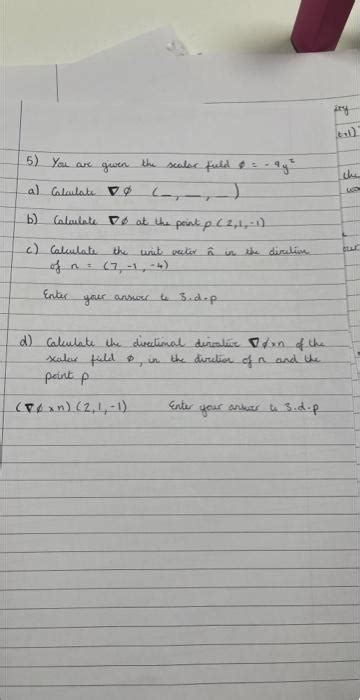 5) You are given the scalar field ø = - 9y²
a) Calculate ∇ø (_, _, _)
b) Calculate ∇ø at the point p (2,1,-1)
c) Calculate the unit vector n̂ in the direction
of n = (7, -1, -4)
Enter your answer to 3.d.p
d) Calculate the directional derivative ∇ø×n of the
scalar field ø, in the direction of n and the
point p
(∇ø×n) (2,1,-1) Enter your answer to 3.d.p
the